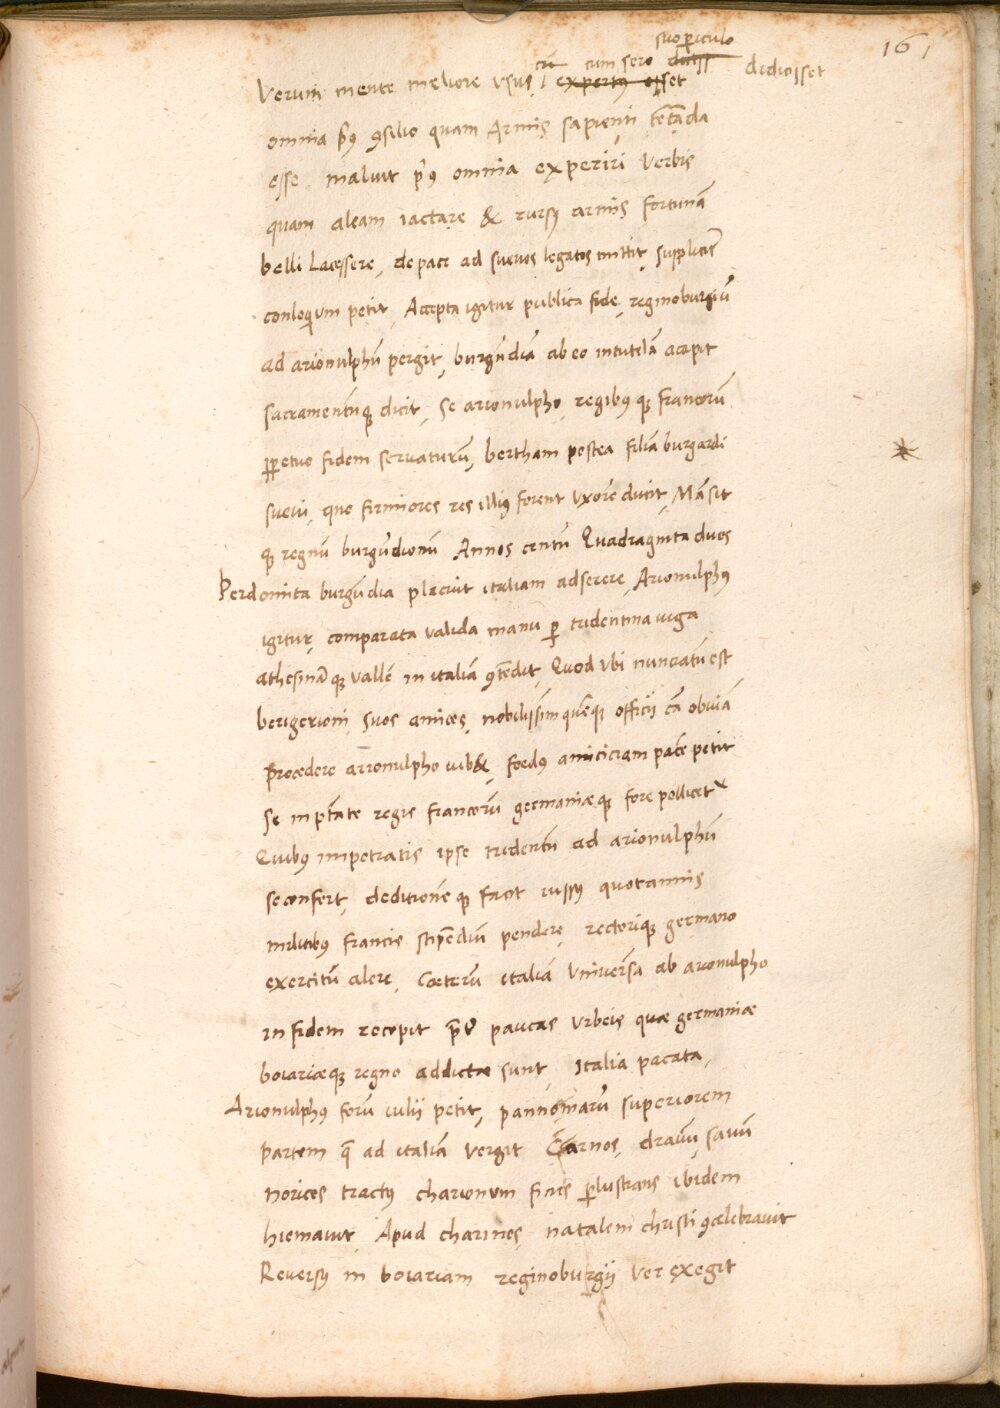 161
suo periculo
cũ cum sero didiss
Verum mente meliore usus, expertus esset didicisset
omnia p̃9 9silio quam Armis sapienti tẽtãda
esse maluit p̃9 omnia experiri Verbis
quam aleam iactare & rursus armis fortunã
belli Lacessere, de pace ad suevos legatos mittit, supplicis
conloquium petit, Accepta igitur publica fide, reginoburgiũ
ad arionulphũ pergit, burgũdiã ab eo in tutelã accipit
sacramentũq dicit, se arionulpho, regibus q francorũ
perpetuo fidem servaturũ, bertham postea filiã burgardi
suevi, quo firmiores res illius forent Uxorẽ ducit, Mãsit
q regnũ burgũdionũ Annos centũ Quadraginta duos
Perdomita burgũdia placuit italiam adserere, Arionulphus
igitur, comparata valida manu per tridentina iuga
athesinãq vallẽ in italiã 9tẽdit, Quod Ubi nunciatũ est
berigerioni, suos amicos, nobilissimũ quẽq officii cã obviã
Procedere arionulpho iub&, foedus amiciciam pacẽ petit
se in ptãte regis francorũ germaniæq fore pollicet
Quibus impetratis ipse tridentũ ad arionulphũ
se confert, deditionẽq facit iussus quotannis
militibus francis stipẽdiũ pendere, rectoriq germano
exercitũ alere, Cæterũ italiã Universã ab arionulpho
in fidem recepit p̃t paucas Urbeis quæ germaniæ
boiariæq regno addictæ sunt, Italia pacata,
Arionulphus forũ iulii petit, pannoniarũ superiorem
partem q̃ ad italiã vergit Carnos, dravũ, savũ
noricos tractus charionum fines perlustrans ibidem
hiemavit, Apud charinos, natalem christi 9celebravit
Reversus in boiariam reginoburgii ver exegit